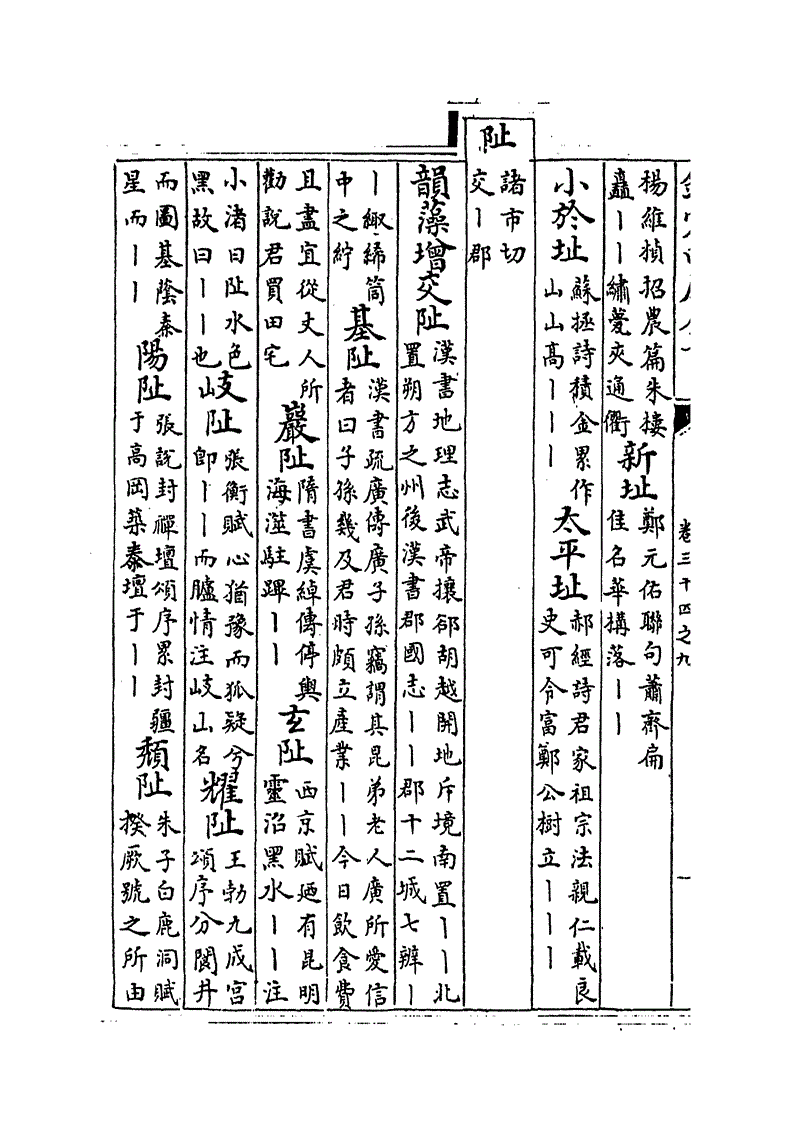 卷三十四之九 一
楊維楨招農篇朱樓矗丨丨繡甍夾通衢 新址 鄭元佑聯句蕭齋扁佳名華搆落丨丨
小於址 蘇拯詩積金累作山山高丨丨丨 太平址 郝經詩君家祖宗法親仁載良史可令富鄭公樹立丨丨丨
阯 諸市切交丨郡
韻藻增交阯 漢書地理志武帝攘郤胡越開地斥境南置丨丨北置朔方之州後漢書郡國志丨丨郡十二城七辨丨
丨緅絺筒中之紵 基阯 漢書疏廣傳廣子孫竊謂其昆弟老人廣所愛信者曰子孫幾及君時頗立產業丨丨今日飲食費
且盡宜從丈人所勸說君買田宅 巖阯 隋書虞綽傳停輿海澨駐蹕丨丨 玄阯 西京賦廼有昆明靈沼黑水丨丨注
小渚曰阯水色黑故曰丨丨也 岐阯 張衡賦心猶豫而狐疑兮卽丨丨而臚情注岐山名 耀阯 王勃九成宮頌序分閟井
而圖基蔭秦星而丨丨 陽阯 張說封禪壇頌序累封疆于高岡築泰壇于丨丨 頹阯 朱子白鹿洞賦揆厥號之所由